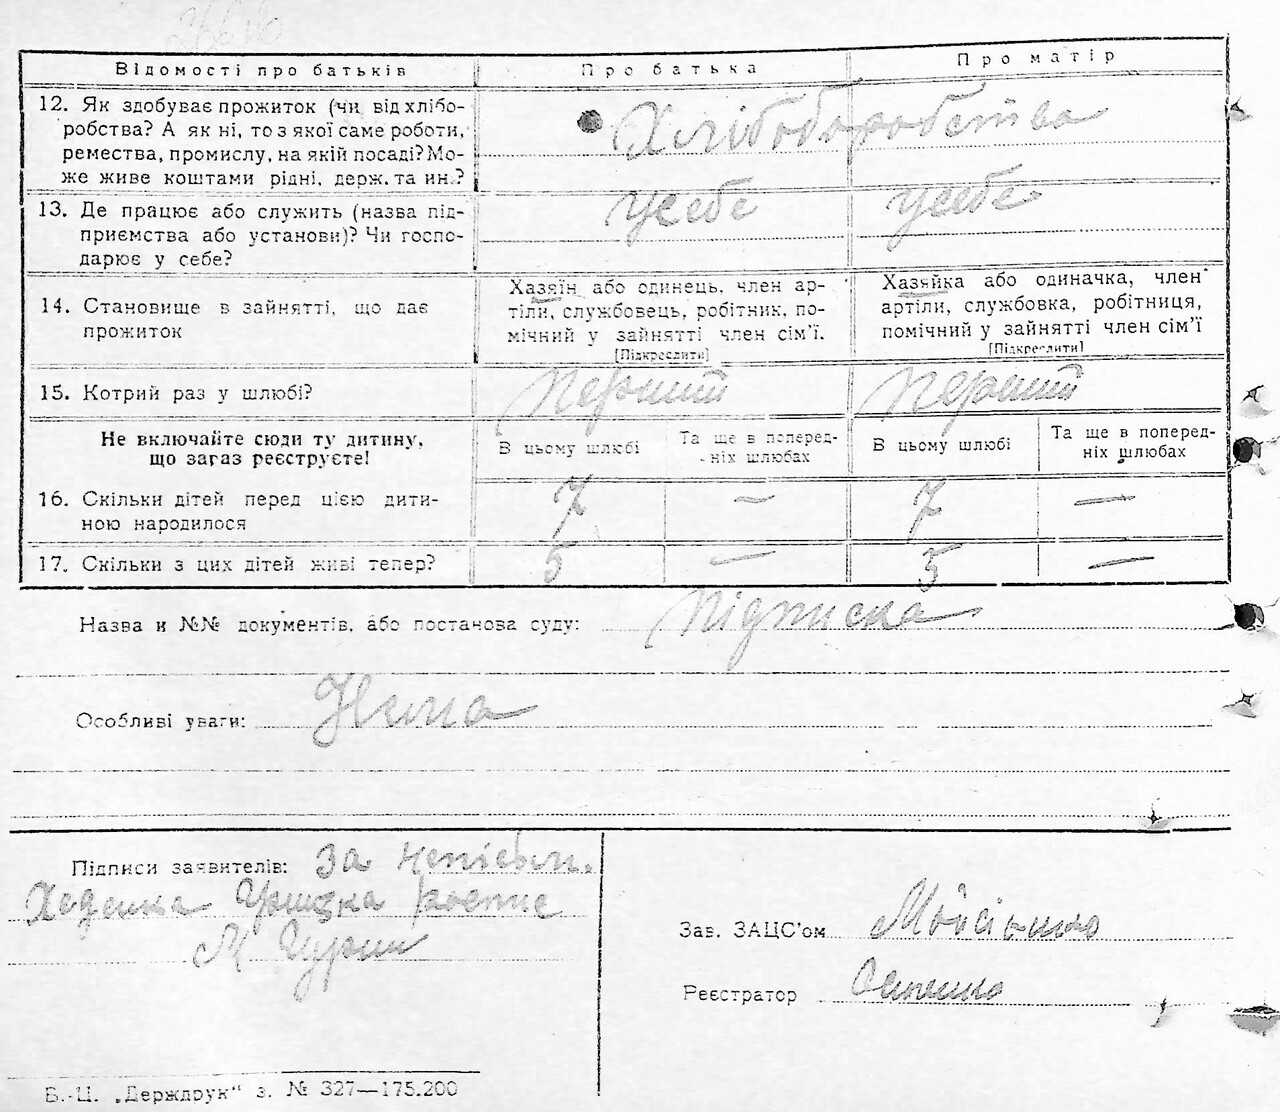 Відомості про батьків
Про батька
Про матір
12. Як здобуває прожиток (чи від хлібо-
робства? А як ні, то з якої саме роботи,
ремества, промислу, на якій посаді? Мо-
же живе коштами рідні, держ. та ин.?
Хлібоборобства
13. Де працює або служить (назва під-
приємства або установи)? Чи госпо-
дарює у себе?
усебе
усебе
14. Становище в зайнятті, що дає
прожиток
Хазяїн або одинець, член ар-
тіли, службовець, робітник, по-
мічний у зайнятті член сім'ї.
[Підкреслити]
Хазяйка або одиначка, член
артіли, службовка, робітниця,
помічний у зайнятті член сім'ї
[Підкреслити]
15. Котрий раз у шлюбі?
Перший
Перший
Не включайте сюди ту дитину,
що загаз реєструєте!
В цьому шлюбі
Та ще в поперед-
ніх шлюбах
В цьому шлюбі
Та ще в поперед-
ніх шлюбах
16. Скільки дітей перед цією дити-
ною народилося
7
—
7
—
17. Скільки з цих дітей живі тепер?
5
—
5
—
Назва и №№ документів, або постанова суду: Підписка
Особливі уваги: Нема
Підписи заявителів: За
М Чурин
Зав. ЗАЦС'ом
Реєстратор
В.-Ц. „Держдрук“ з. № 327—175.200